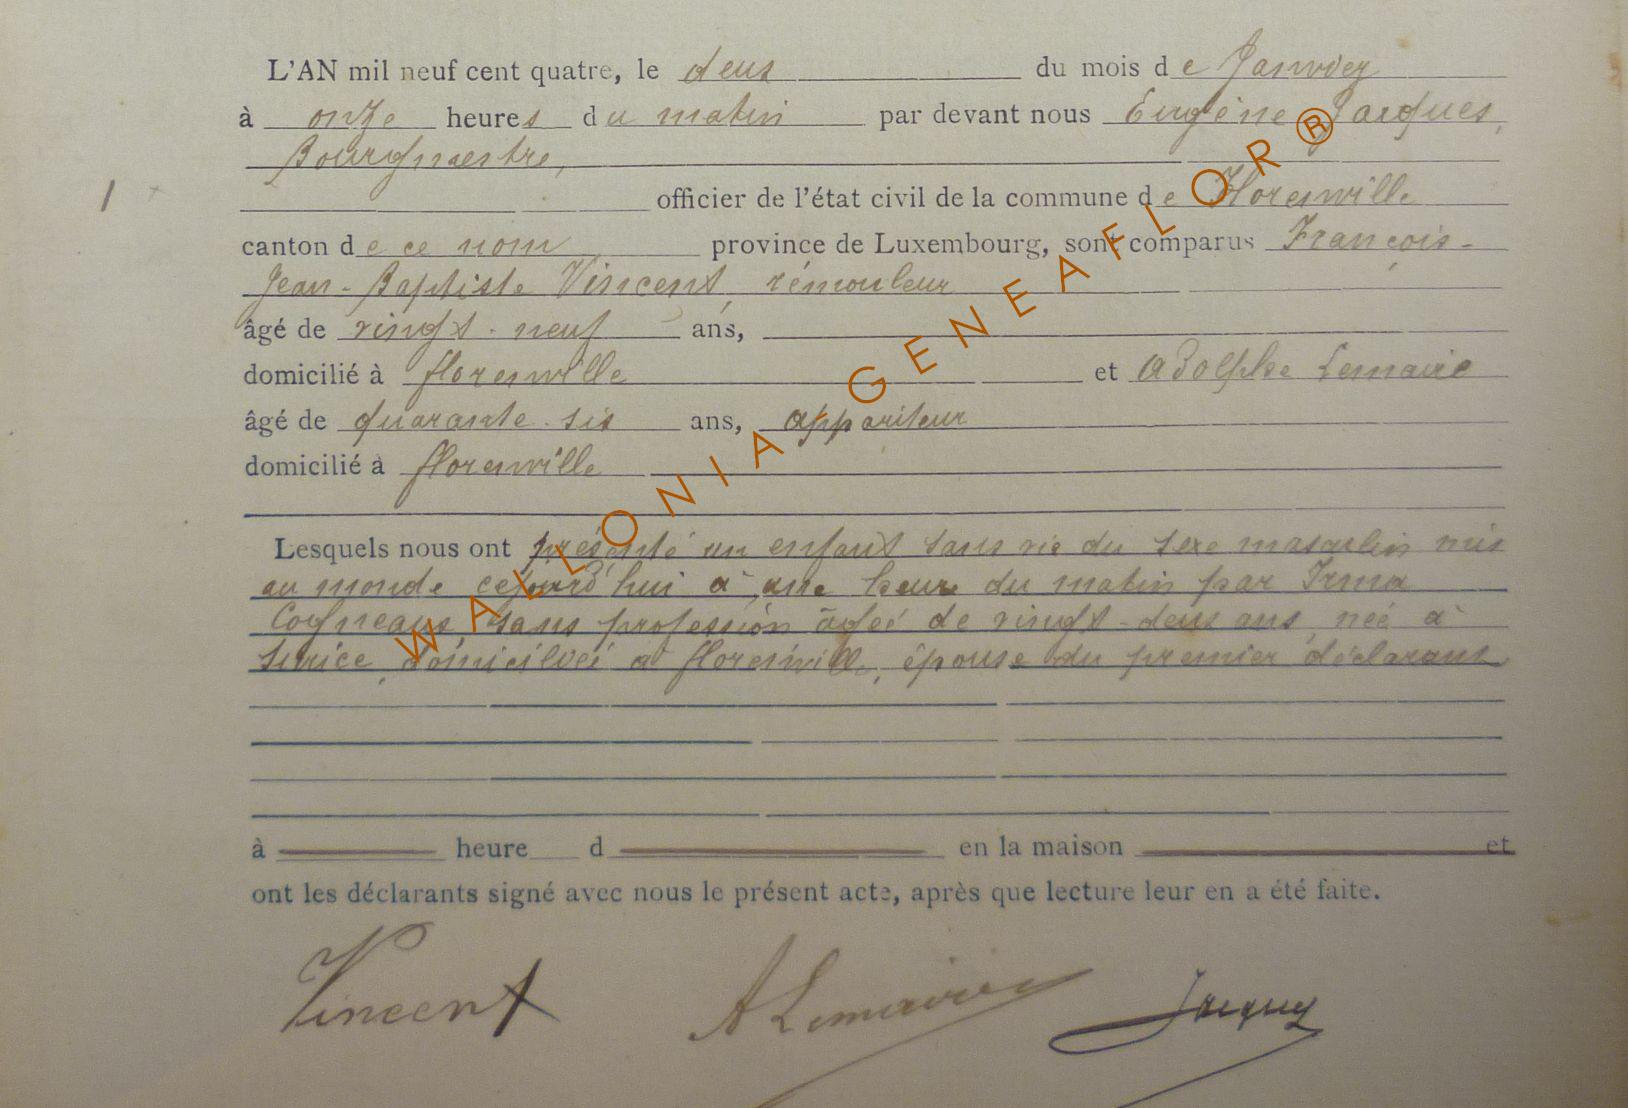 L'AN mil neuf cent quatre, le deux du mois de Janvier
à onze heures du matin par devant nous Eugène Jacques,
Bourgmestre,
1
officier de l'état civil de la commune de Florenville
canton de ce nom province de Luxembourg, sont comparus François-
Jean-Baptiste Vincent, rémouleur
âgé de vingt-neuf ans,
domicilié à florenville et Adolphe Lemaire
âgé de quarante-six ans, appariteur
domicilié à florenville
Lesquels nous ont présenté un enfant sans vie du sexe masculin mis
au monde cejourd'hui à une heure du matin par Irma
Cogneaux, sans profession âgée de vingt-deux ans, née à
domiciliée à florenville, épouse du premier déclarant
à heure d en la maison et
ont les déclarants signé avec nous le présent acte, après que lecture leur en a été faite.
Vincent A Lemaire Jacques
WALLONIA GENEAFLOR®